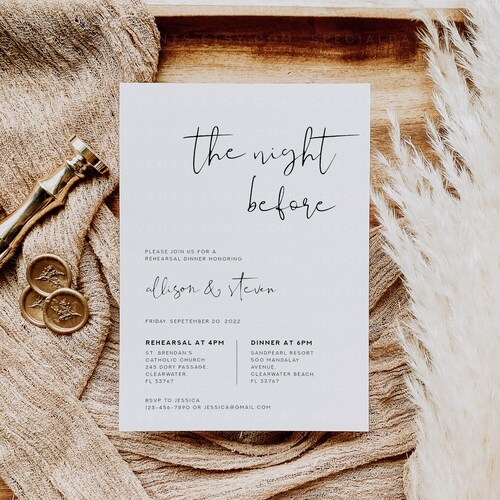 the night
before
PLEASE JOIN US FOR A
REHEARSAL DINNER HONORING
allison & steven
FRIDAY, SEPETEMBER 20, 2022
REHEARSAL AT 4PM
ST. BRENDAN'S
CATHOLIC CHURCH
245 DORY PASSAGE.
CLEARWATER.
FL 33767
DINNER AT 6PM
SANDPEARL RESORT
500 MANDALAY
AVENUE.
CLEARWATER BEACH.
FL 33767
RSVP TO JESSICA
123-456-7890 OR JESSICA@GMAIL.COM